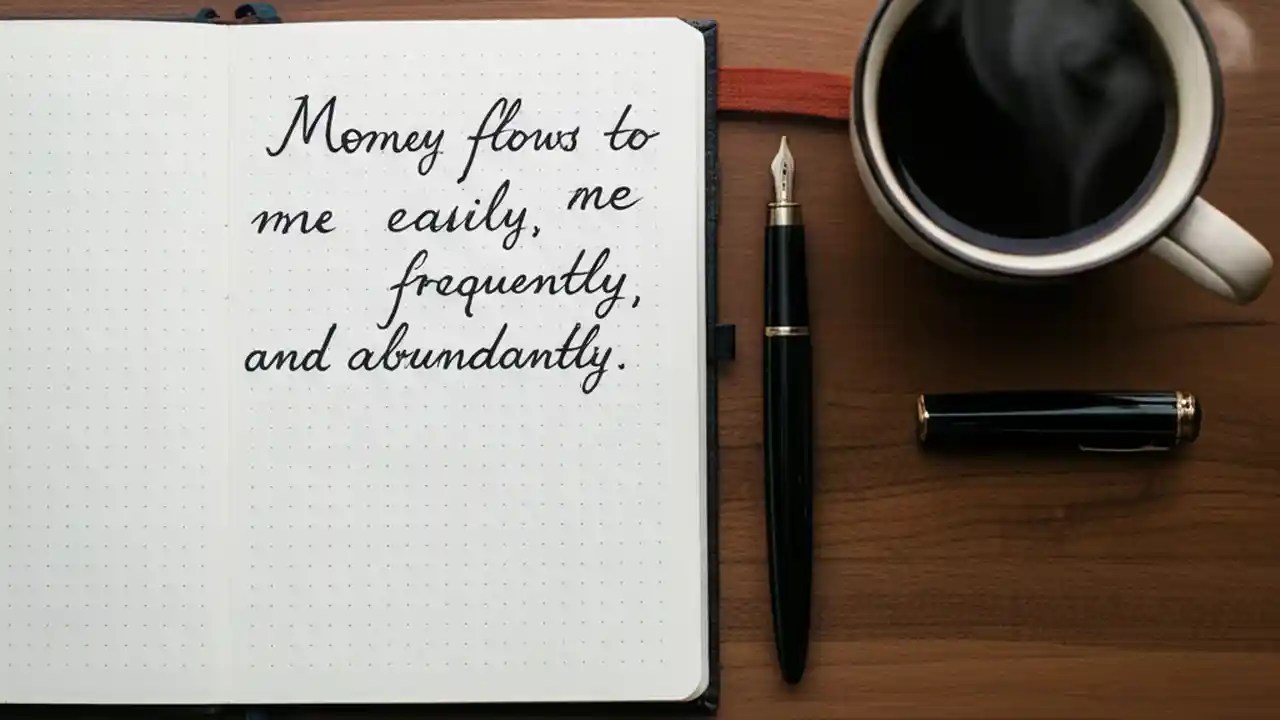 Momey flows to
me easily, me
frequently,
and abundantly.